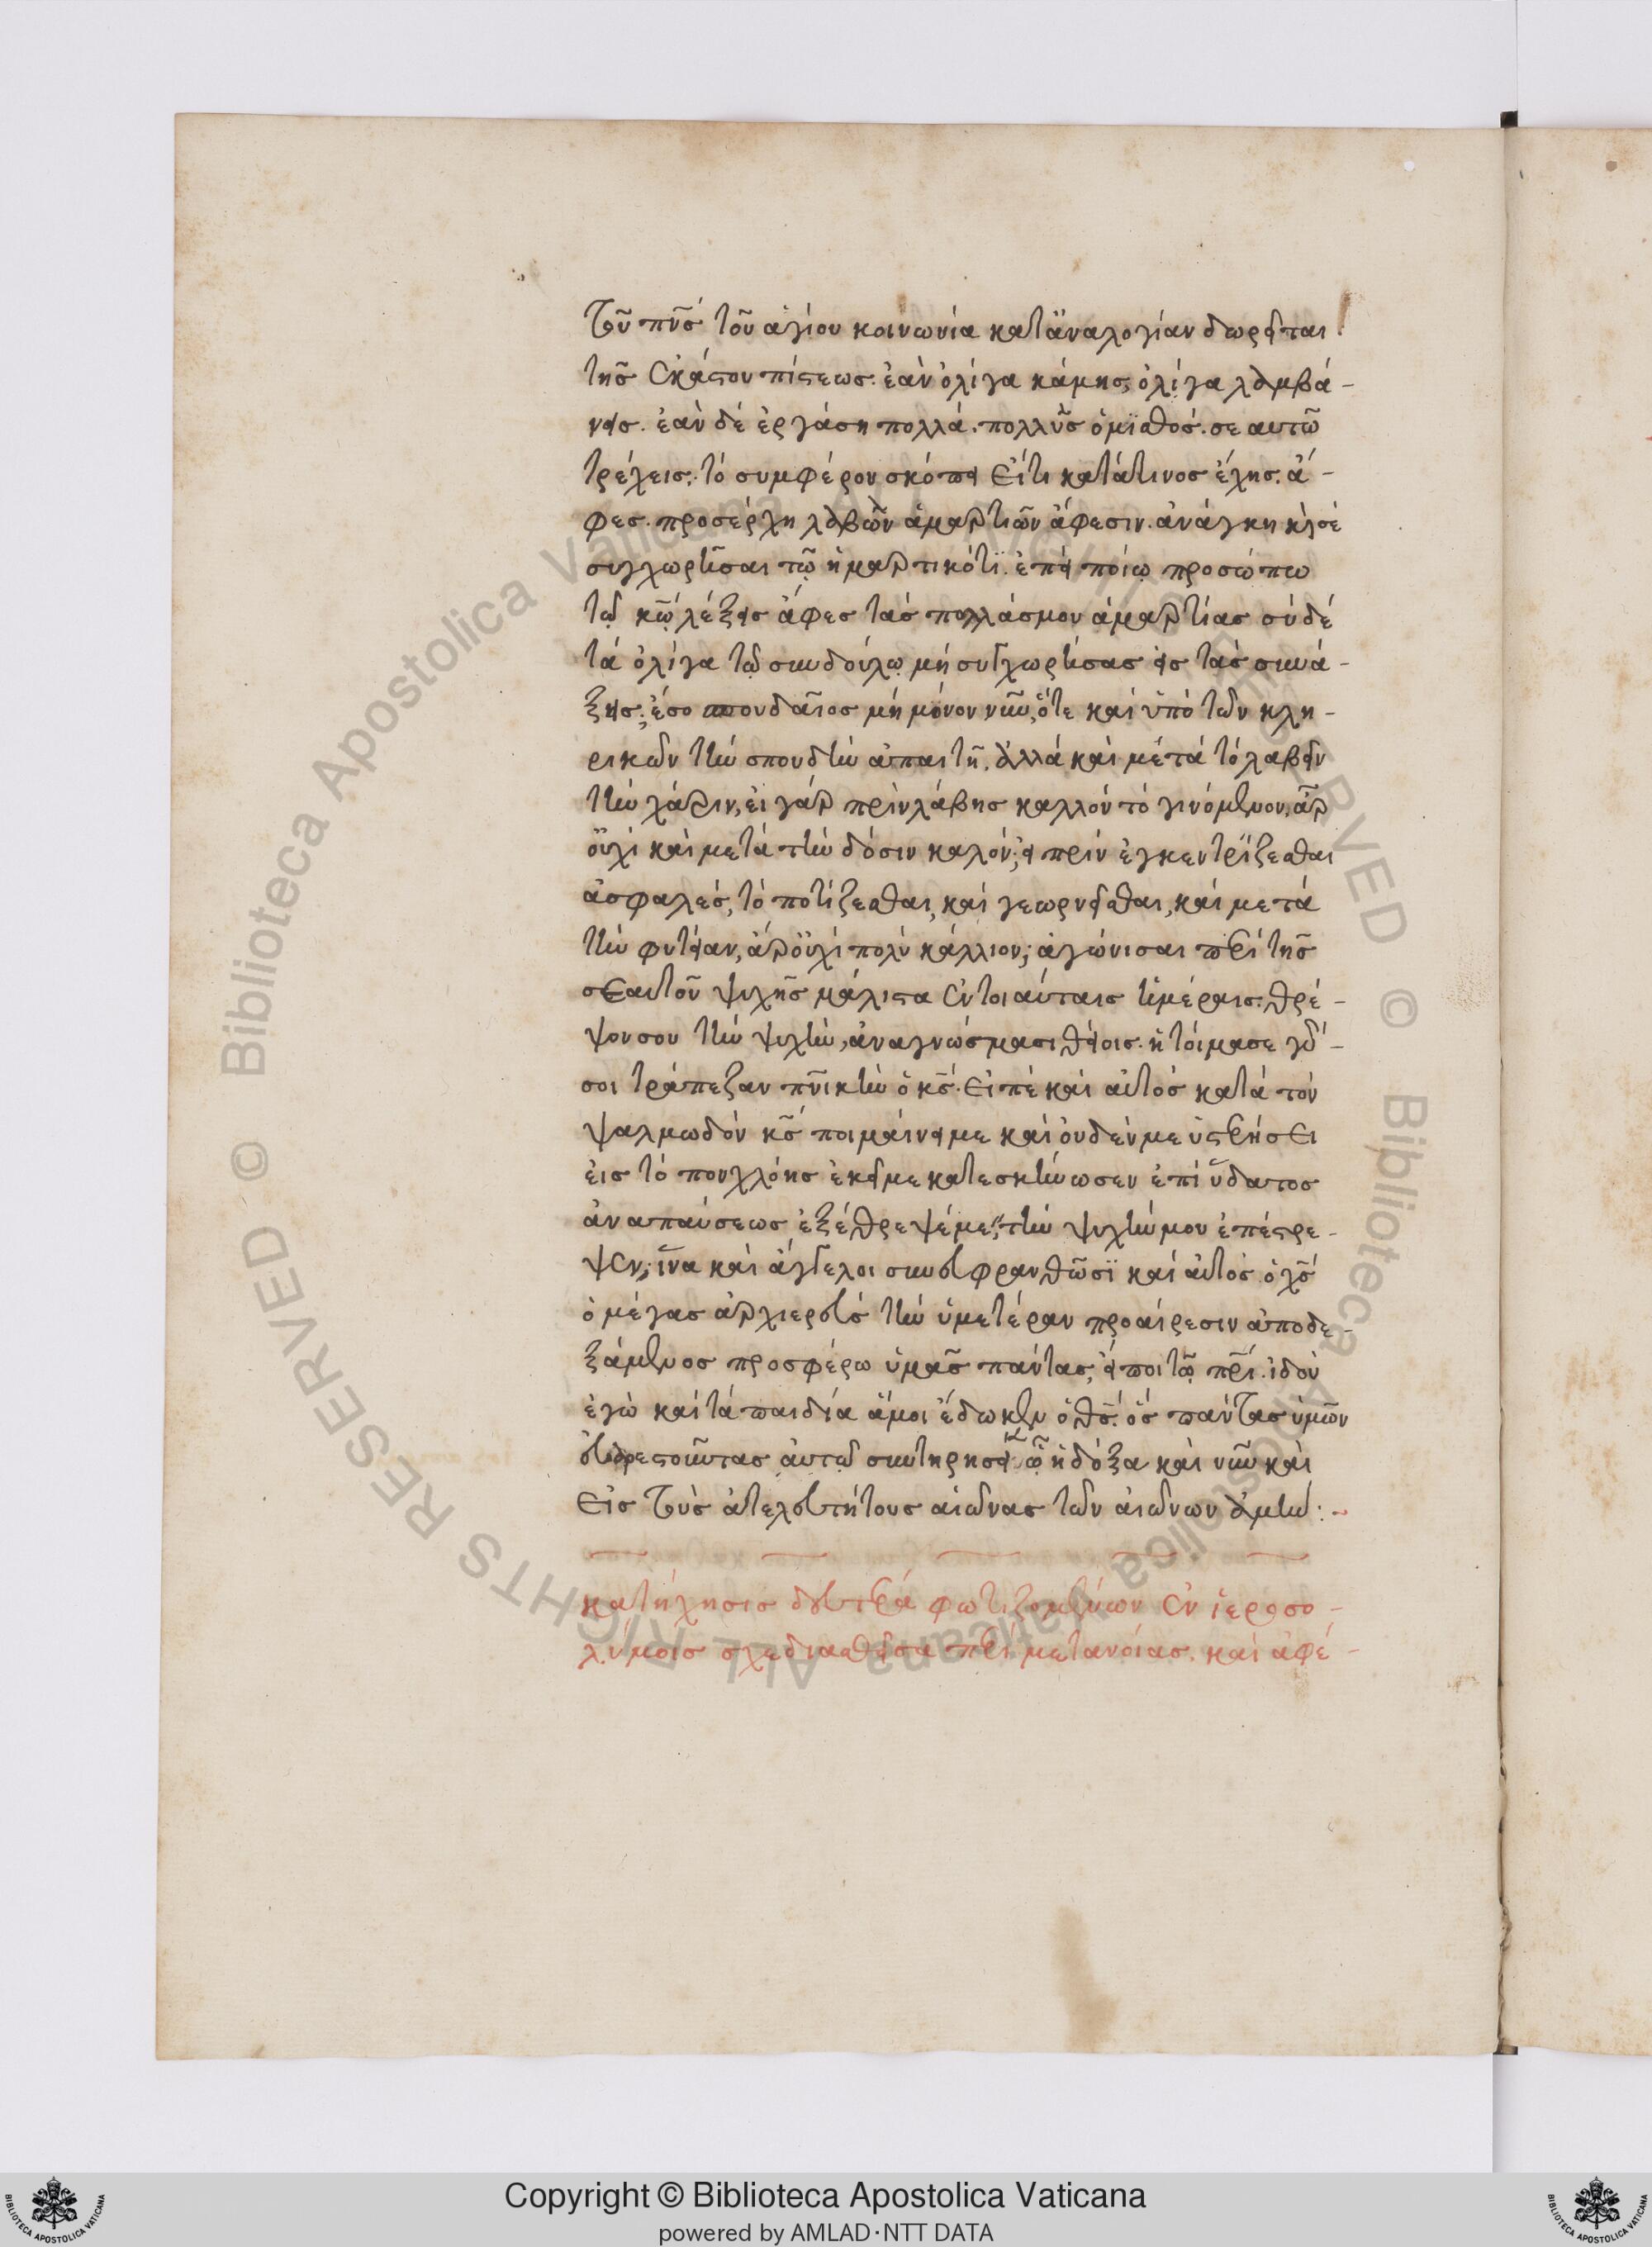 τοῦ πν̅ς τοῦ ἁγίου κοινωνία κατἀναλογίαν δωρεῖται
τῆς ἑκάστου πίστεως. ἐὰν ὀλίγα κάμης, ὀλίγα λαμβά-
νεις. ἐὰν δὲ ἐργάση πολλὰ. πολλὺς ὁ μισθός. σε αυτῶ
τρέχεις. τὸ συμφέρον σκόπει εἴ τι κατά τινος ἔχης. ἄ-
φες. προσέρχη λαβὼν ἁμαρτιῶν ἄφεσιν. ἀνάγκη καὶ σὲ
συγχωρῆσαι τῶ ἡμαρτικότι. ἐπεὶ ποίω προσώπω
τῶ κ̅ω λέξεις ἄφες τάς πολλάς μου ἁμαρτίας σὺ δέ
τά ὀλίγα τῶ συνδούλω μή συγχωρήσας εἰς τάς συνά-
ξεις; ἔσο σπουδαῖος μή μόνον νῦν, ὅτε καί ὑπό τῶν κλη-
ρικῶν τὴν σπουδὴν ἀπαιτῆ. ἀλλά καὶ μετά τό λαβεῖν
τὴν χάριν, εἰ γάρ πρὶν λάβης καλλόν τό γινόμενον, ἆρ
οὐχί καὶ μετά τὴν δόσιν καλόν; εἰ πρίν ἐγκεντρίζεσθαι
ἀσφαλές, τό ποτίζεσθαι, καί γεωργεῖσθαι, καί μετά
τὴν φυτείαν, ἆρ οὐχί πολὺ κάλλιον; ἀγώνισαι περί τῆς
σεαυτοῦ ψυχῆς μάλιστα ἐν τοιαύταις ἡμέραις. θρέ-
ψον σου τὴν ψυχὴν, ἀναγνώσμασι θείοις. ἡτοίμασε γάρ
σοι τράπεζαν πν̅ικὴν ὁ κ̅ς. εἰπὲ καὶ αὐτός κατά τόν
ψαλμωδόν κ̅ς ποιμαίνει με καί ουδέν με ὑστερήσει
εἰς τό που χλόης ἐκεῖ με κατεσκήνωσεν ἐπί ὕδατος
ἀναπαύσεως ἐξέθρεψέ με, τὴν ψυχὴν μου ἐπέστρε-
ψεν; ἵνα καὶ ἄγγελοι συνευφρανθῶσϊ καί αὐτός ὁ χ̅ς
ὁ μέγας ἀρχιερεύς τὴν ὑμετέραν προαίρεσιν ἀποδε-
ξάμενος προσφέρω ὑμᾶς πάντας, εἴποι τῶ π̅ρι. ἰδού
ἐγώ καί τά παιδία ἅ μοι ἔδωκεν ὁ θ̅ς. ὅς πάντας ὑμῶν
εὐαρεστοῦντας αὐτῶ συντηρήσει ὧ ἡ δόξα καὶ νῦν καὶ
εἰς τοὺς ἀτελευτήτους αἰῶνας τῶν αἰώνων ἀμὴν :~
κατήχησις δευτέρα φωτιζομένων ἐν ἱεροσο-
λύμοις σχεδιασθεῖσα περί μετανοίας. καί ἀφέ-
Copyright © Biblioteca Apostolica Vaticana
powered by AMLAD·NTT DATA
© Biblioteca Apostolica Vaticana ALL RIGHTS RESERVED © Biblioteca Apostolica Vaticana ALL RIGHTS RESERVED
BIBLIOTECA APOSTOLICA VATICANA
BIBLIOTECA APOSTOLICA VATICANA